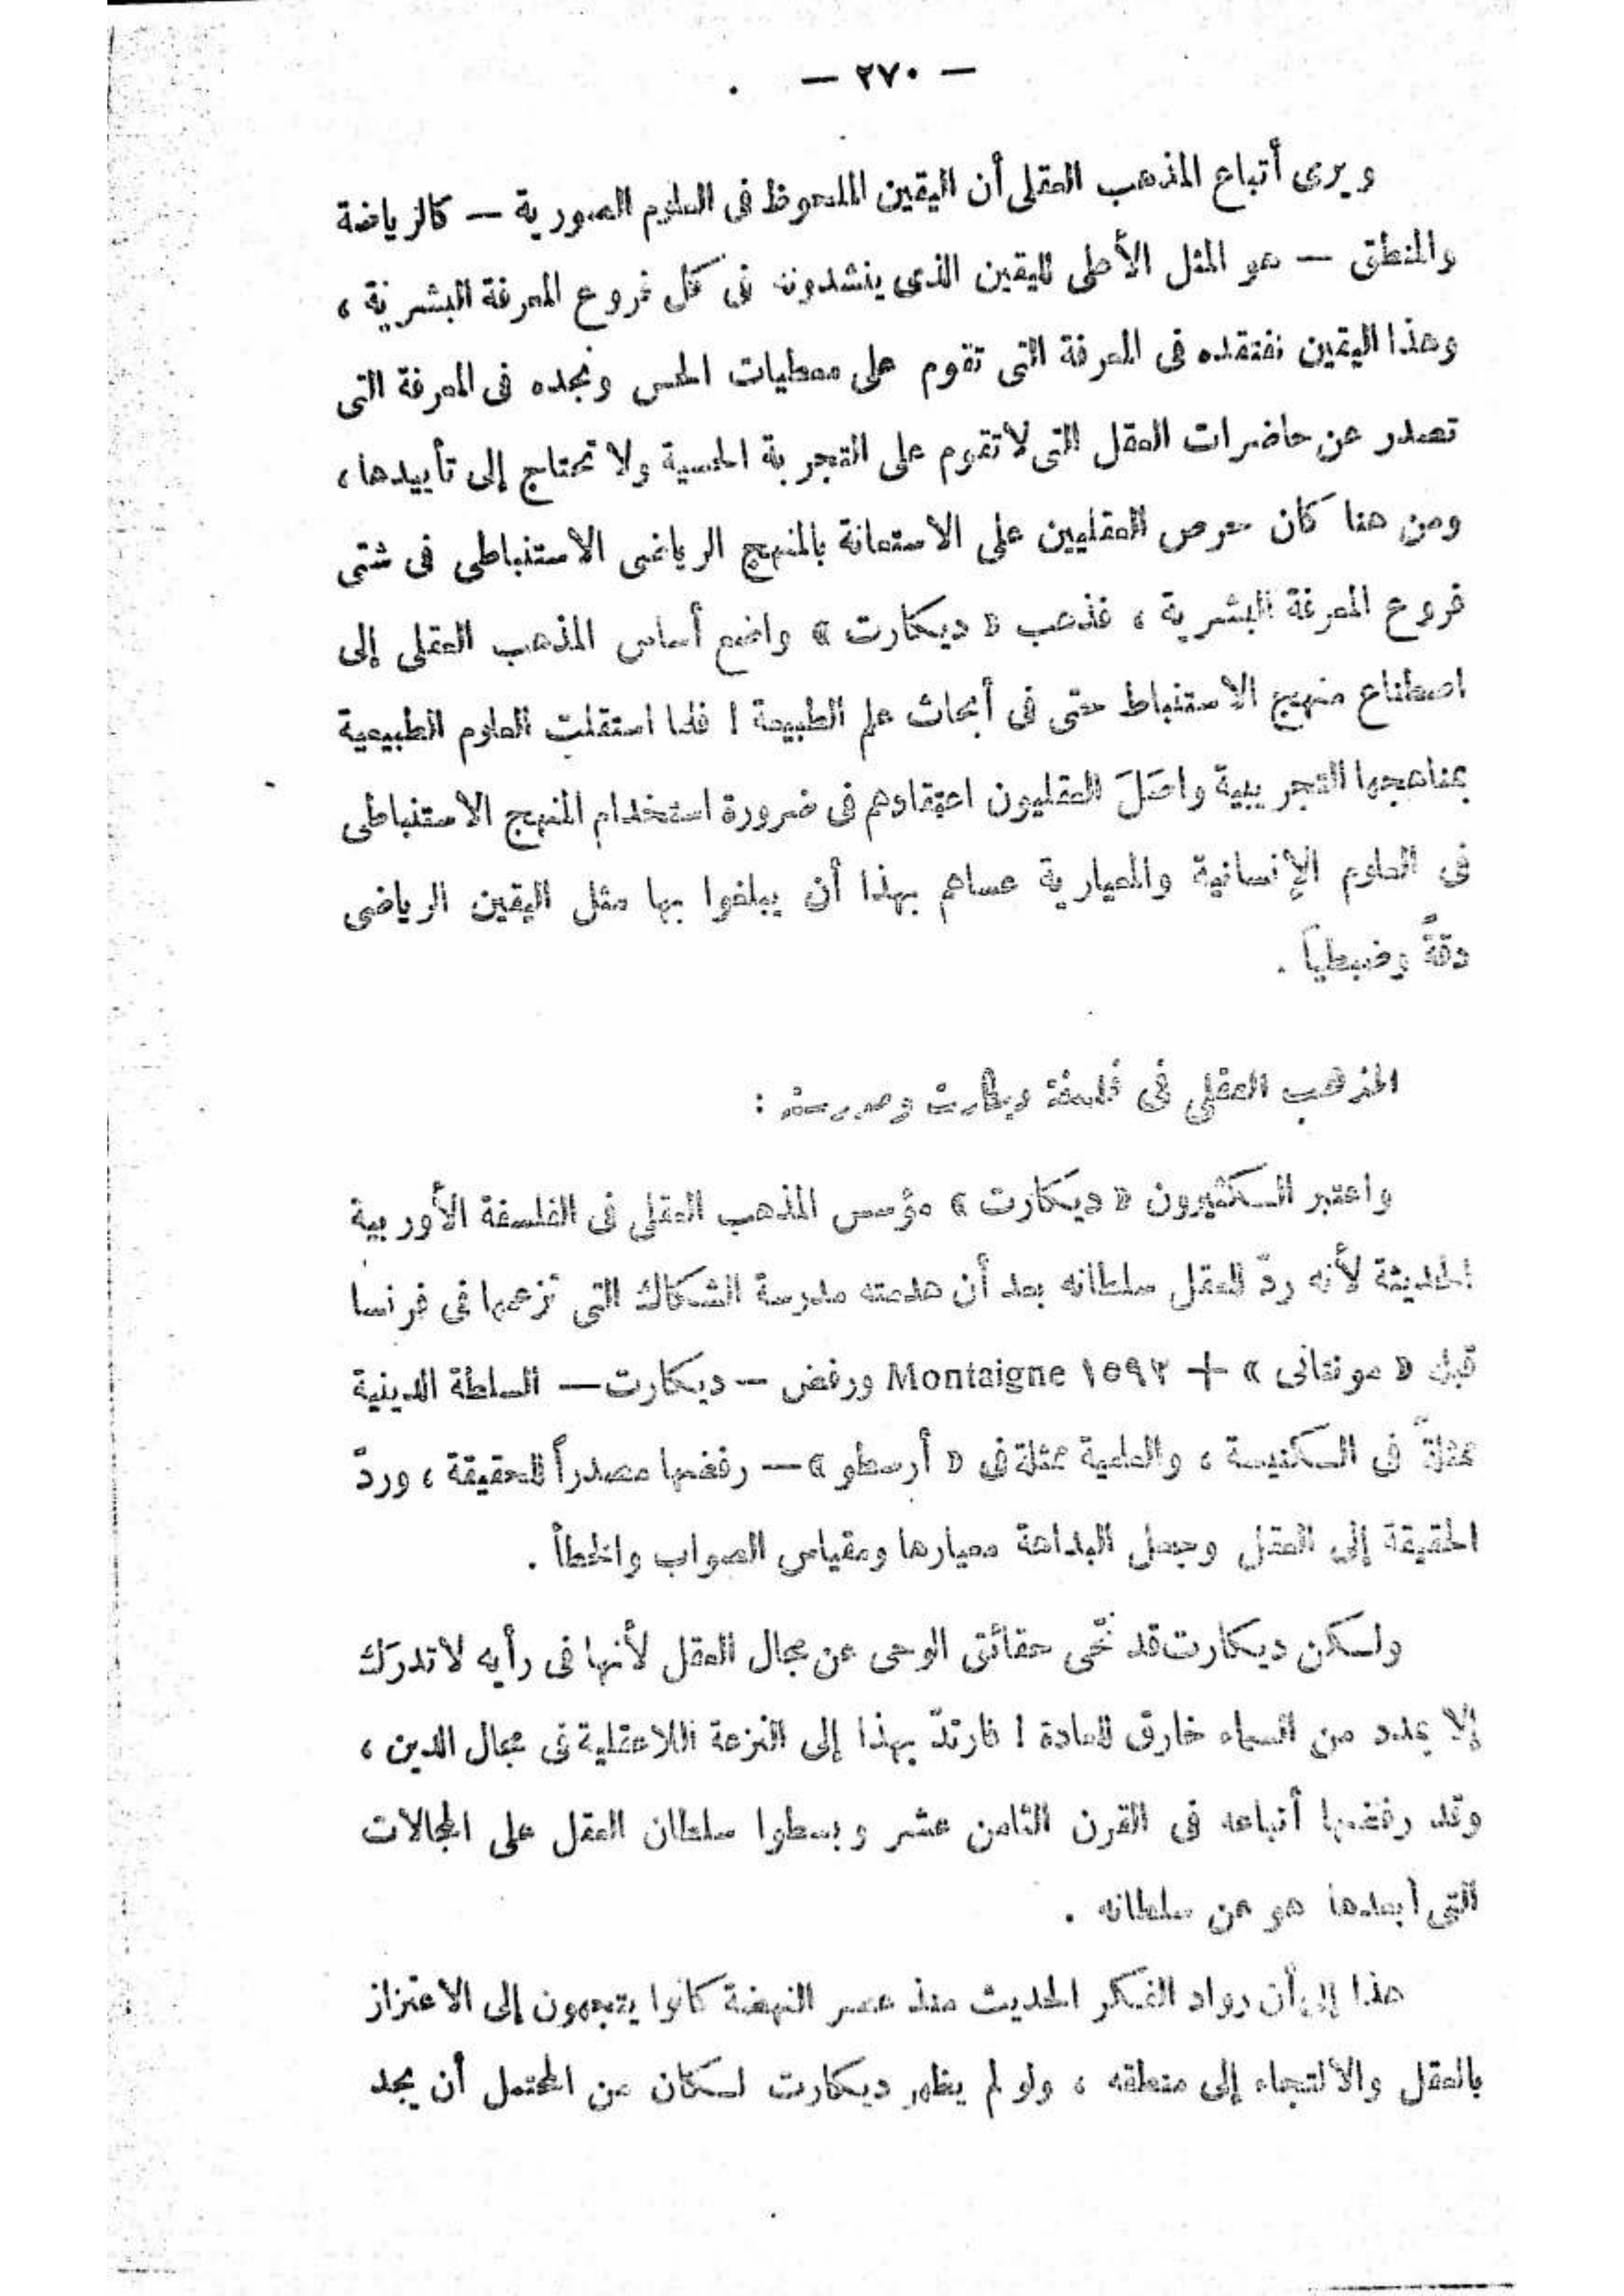 — ٢٧٠ —
ويرى أتباع المذهب العقلى أن اليقين الملحوظ فى العلوم الصورية — كالرياضة
والمنطق — هو المثل الأعلى لليقين الذى ينشدونه فى كل فروع المعرفة البشرية ،
وهذا اليقين نفتقده فى المعرفة التى تقوم على معطيات الحس ونجده فى المعرفة التى
تصدر عن حاضرات العقل التى لا تقوم على التجربة الحسية ولا تحتاج إلى تأييدها ،
ومن هنا كان حرص العقليين على الاستعانة بالمنهج الرياضى الاستنباطى فى شتى
فروع المعرفة البشرية ، فذهب « ديكارت » واضع أساس المذهب العقلى إلى
اصطناع منهج الاستنباط حتى فى أبحاث علم الطبيعة ! فلما استقلت العلوم الطبيعية
بمناهجها التجريبية واصَلَ العقليون اعتقادهم فى ضرورة استخدام المنهج الاستنباطى
فى العلوم الإنسانية والمعيارية عساهم بهذا أن يبلغوا بها مثل اليقين الرياضى
دقةً وضبطاً .
المذهب العقلى فى فلسفة ديكارت ومدرسته :
واعتبر الكثيرون « ديكارت » مؤسس المذهب العقلى فى الفلسفة الأوربية
الحديثة لأنه ردّ للعقل سلطانه بعد أن هدمته مدرسة الشكاك التى تزعمها فى فرنسا
قبله « مونتانى » + ١٥٩٢ Montaigne ورفض — ديكارت — السلطة الدينية
ممثلةً فى الكنيسة ، والعلمية ممثلة فى « أرسطو » — رفضها مصدراً للحقيقة ، وردّ
الحقيقة إلى العقل وجعل البداهة معيارها ومقياس الصواب والخطأ .
ولكن ديكارت قد نحّى حقائق الوحى عن مجال العقل لأنها فى رأيه لا تدرَك
إلا بمدد من السماء خارق للعادة ! فارتدّ بهذا إلى النزعة اللاعقلية فى مجال الدين ،
وقد رفضها أتباعه فى القرن الثامن عشر وبسطوا سلطان العقل على المجالات
التى أبعدها هو عن سلطانه .
هذا إلى أن رواد الفكر الحديث منذ عصر النهضة كانوا يتجهون إلى الاعتزاز
بالعقل والالتجاء إلى منطقه ، ولو لم يظهر ديكارت لكان من المحتمل أن يجد